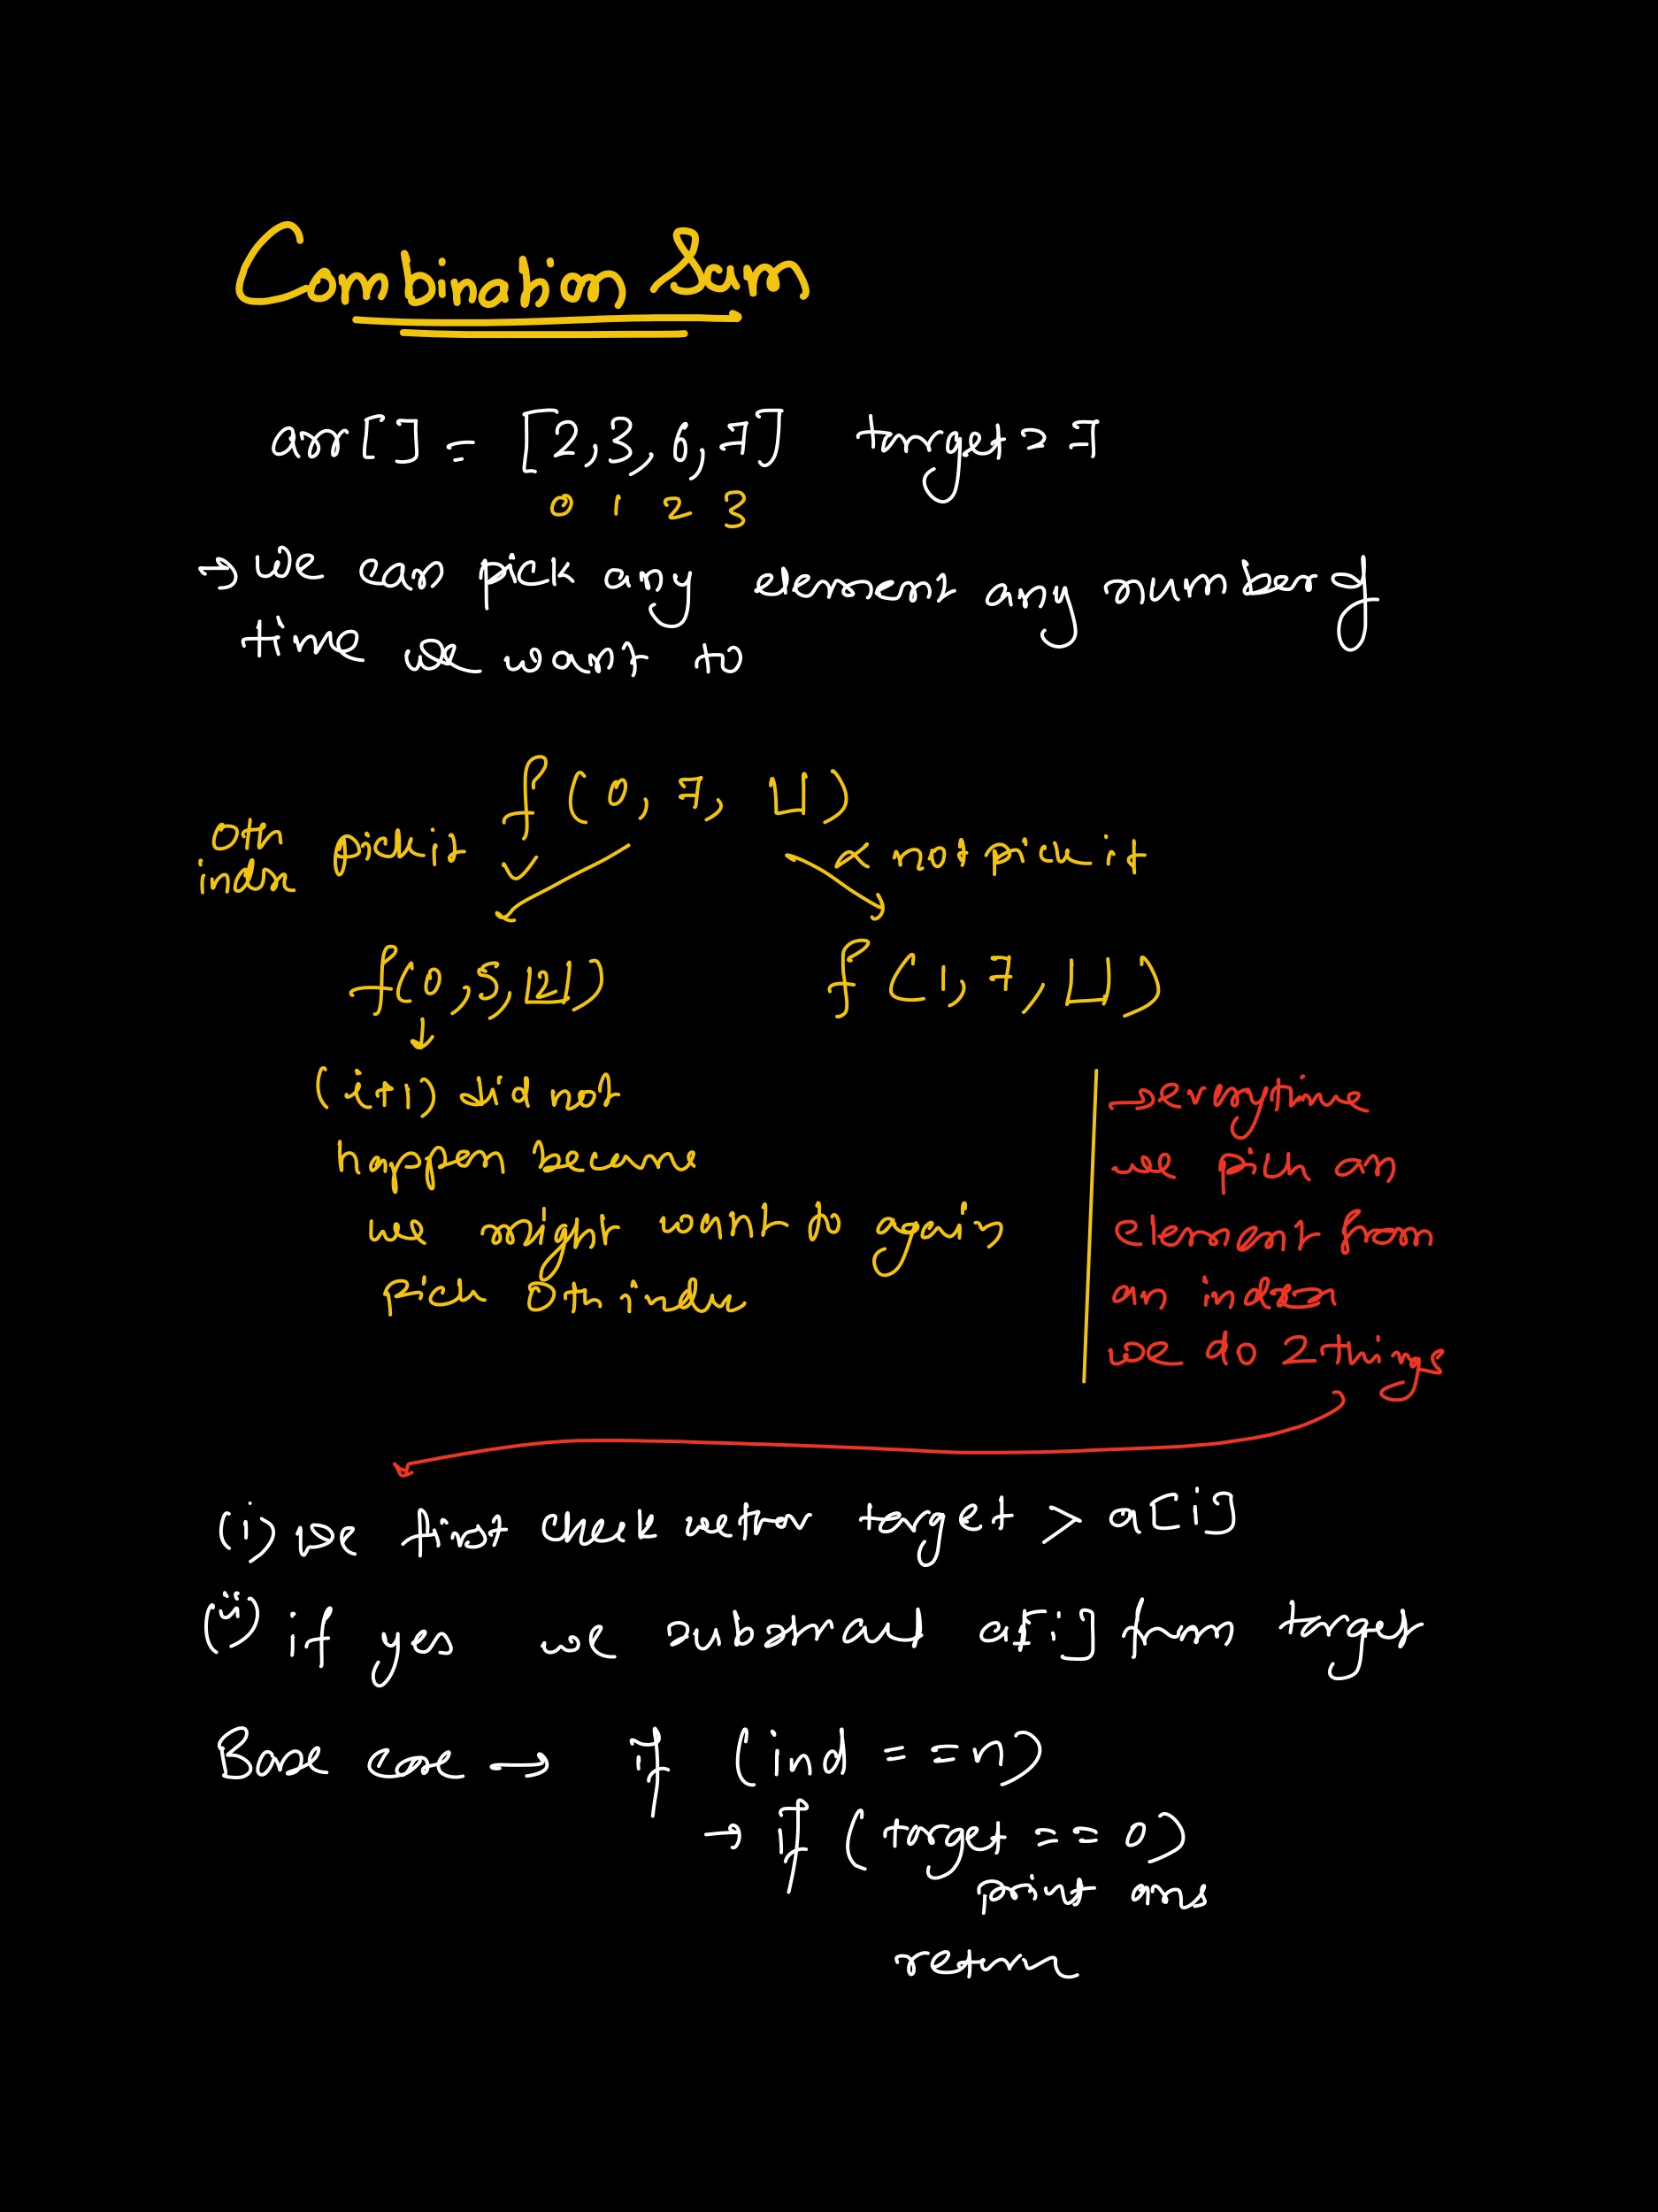 Combination Sum
arr[] = [2,3,6,7] target = 7
0 1 2 3
→ we can pick any element any number of
time we want to
f(0, 7, [])
0th index pick it ✓
× not pick it
f(0,5,[2]) f(1,7,[])
(i+1) did not
happen because
we might want to again
pick 0th index
→ everytime
we pick an
element from
an index
we do 2 things
(i) we first check wether target > a[i]
(ii) if yes we substract a[i] from target
Base case → if (ind == n)
→ if (target == 0)
print ans
return